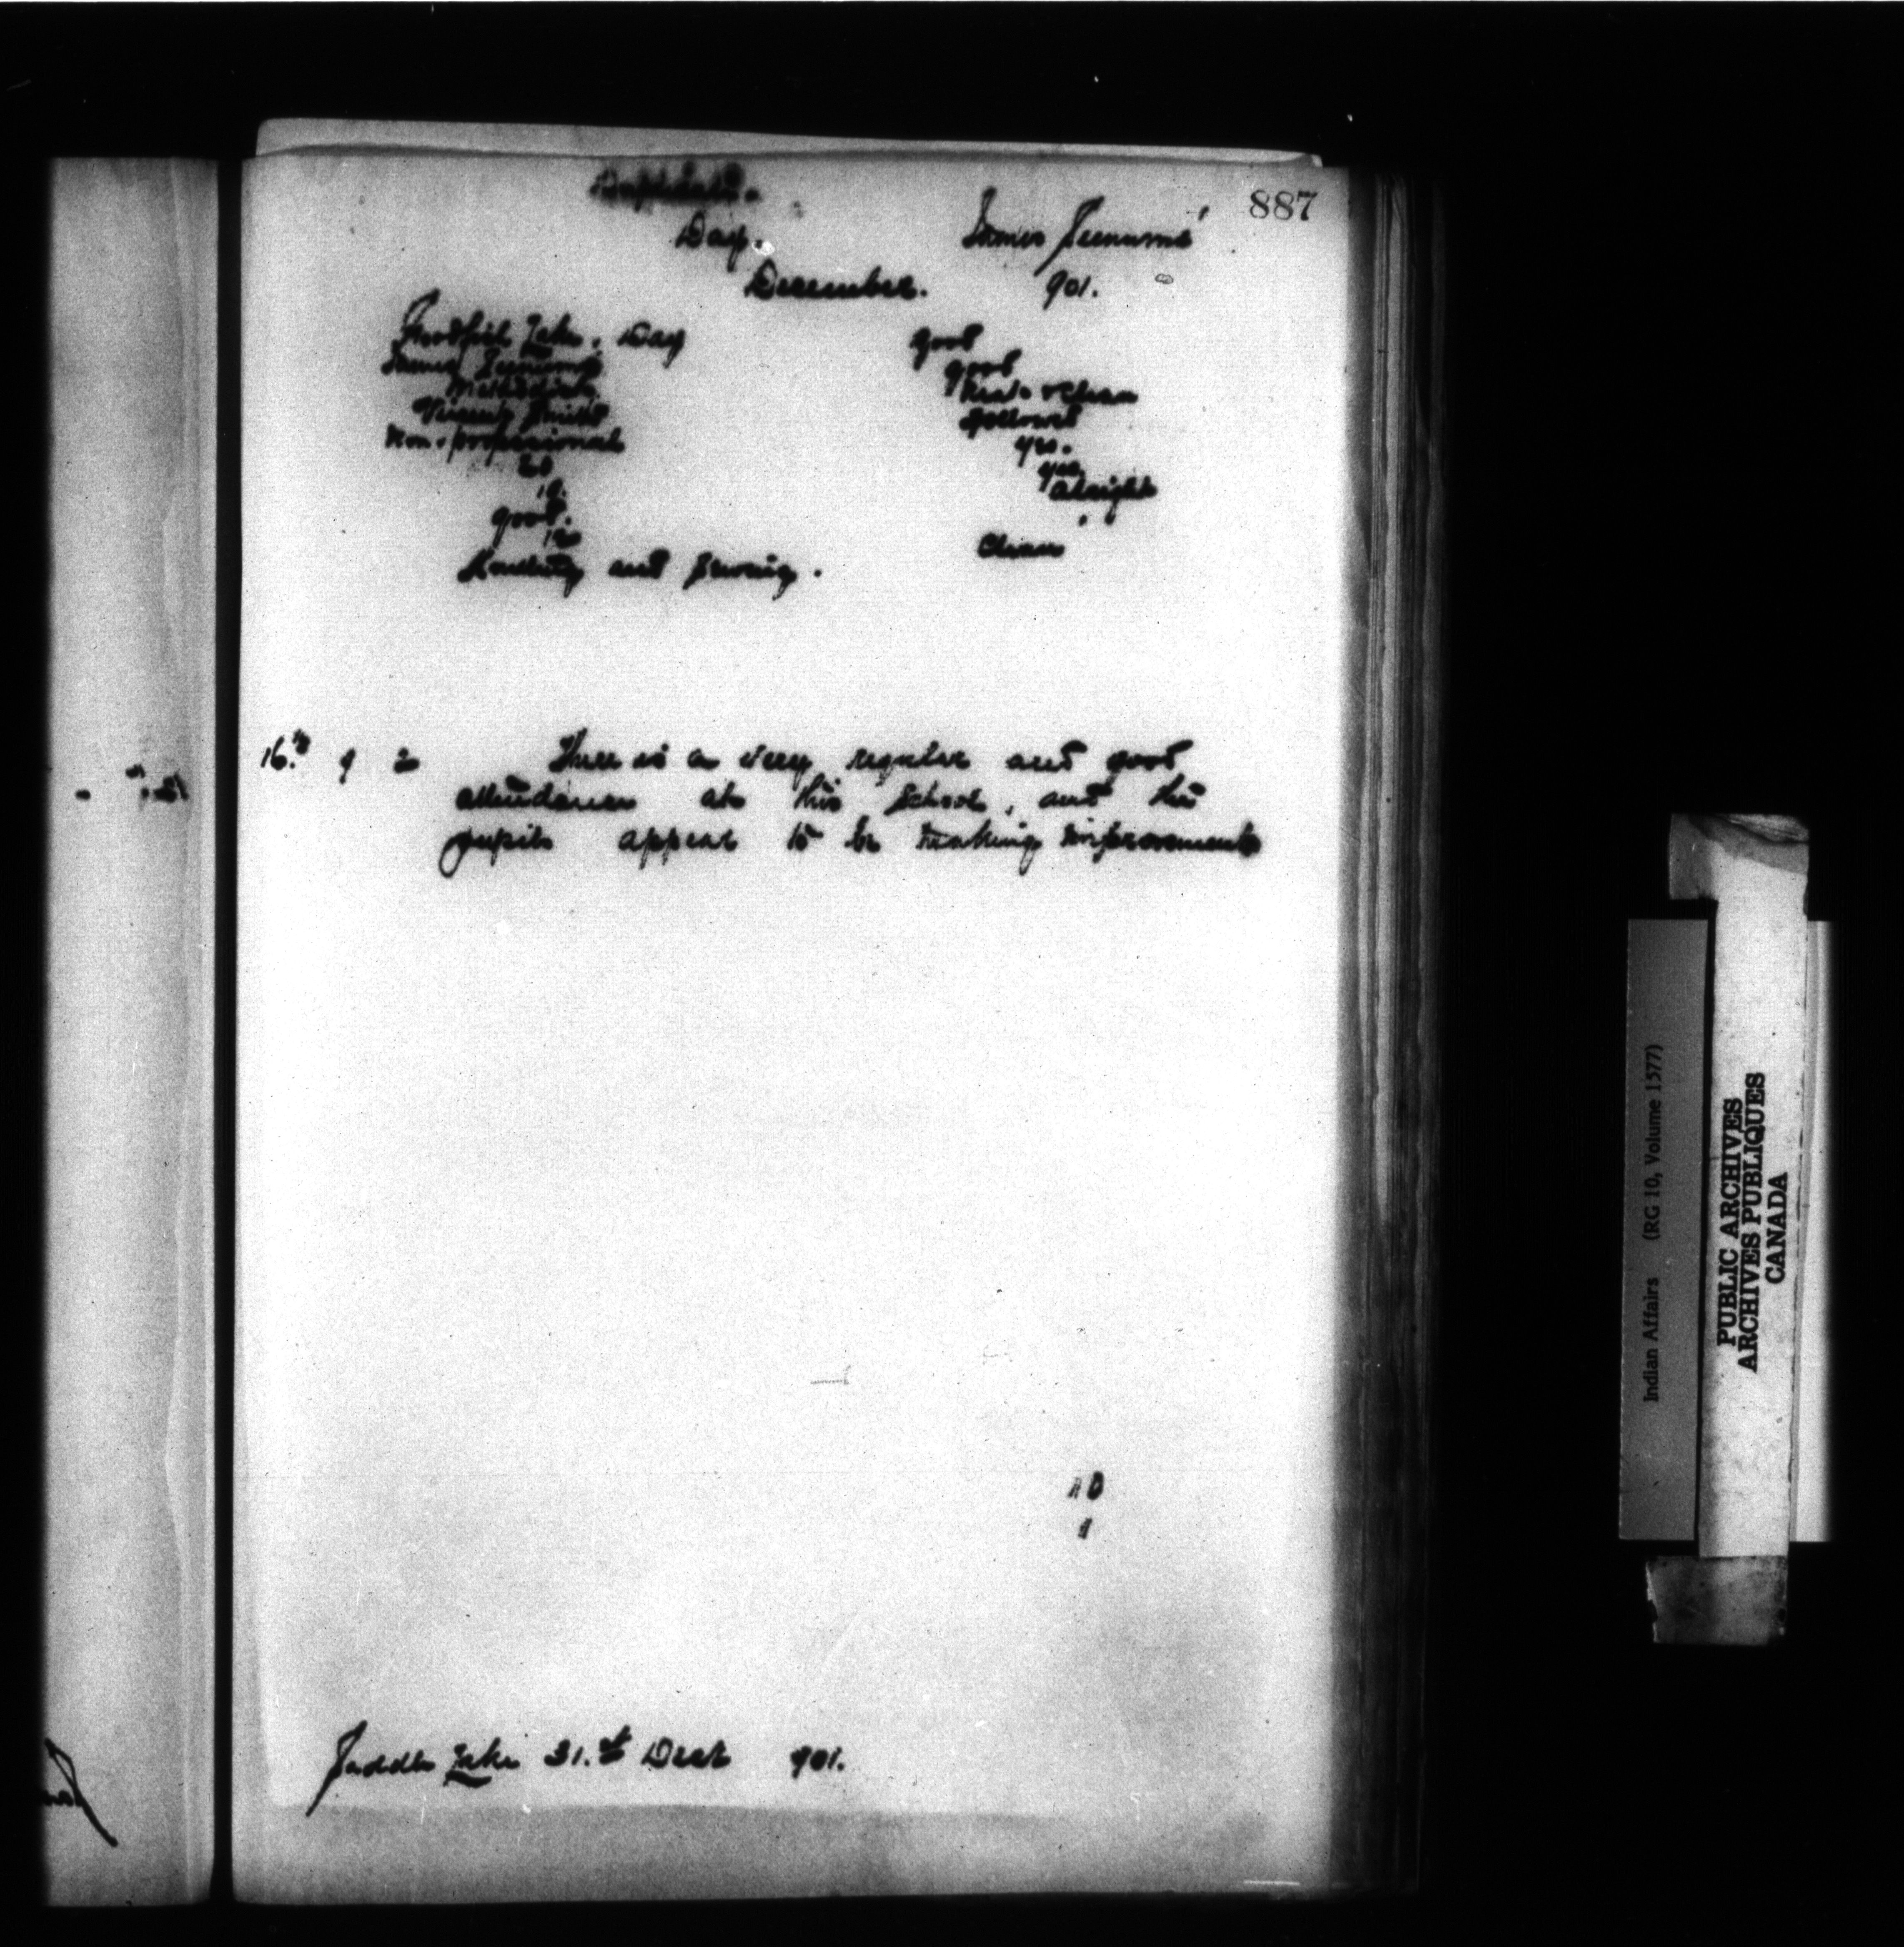 887
Duplicate.
Day.
James Seenum's
December. 901.
Goodfish Lake. Day
James Seenum's
Methodist
Vincent Smith
Non-professional
20
19.
good.
12
Knitting and Sewing.
good
good
Neat & Clean
followed
yes.
yes
alright
Clean
16.th 9 2 There is a very regular and good
attendance at this School, and the
pupils appear to be making improvement
10
1
Saddle Lake 31.st Dec 901.
Indian Affairs (RG 10, Volume 1577)
PUBLIC ARCHIVES
ARCHIVES PUBLIQUES
CANADA